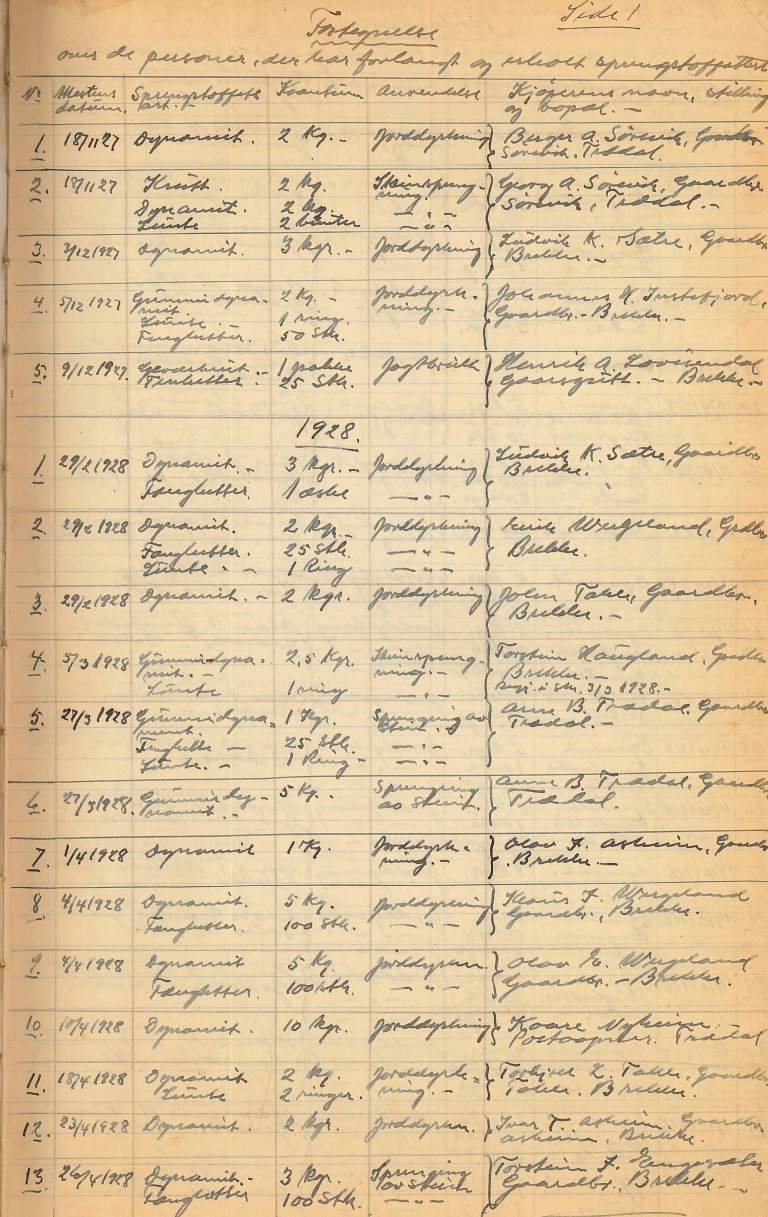 Side 1
Fortegnelse
over de personer, der har forlangt og erholt sprengstoffattest
Nr. Attestens datum. Sprengstoffets art. - Kvantum Anvendelse Kjøperens navn, stilling og bopæl. -
1. 18/11 27 Dynamit. 2 Kg. - Jorddyrkning Birger A. Sørevik, Gaardbr.
Sørevik. Trædal.
2. 18/11 27 Krutt. 2 Kg. Stensspreng- Georg A. Sørevik, Gaardbr.
Dynamit. 2 Kg. ning. Sørevik, Trædal. -
Lunte 2 bunter — " —
3. 3/12 1927 Dynamit. 3 Kgr. - Jorddyrkning Ludvik K. Sætre, Gaardbr.
Brekke. -
4. 5/12 1927 Gummidyna- 2 Kg. - Jorddyrk- Johannes H.
mit ning. - Gaardbr. - Brekke. -
Lunte. - 1 ring.
Fenghetter. 50 Stk.
5. 9/12 1927. Geværkrutt. - 1 pakke Jagtbruk Henrik A.
Fenhetter. 25 Stk. Brekke. -
1928.
1 29/2 1928 Dynamit. - 3 Kgr. - Jorddyrkning Ludvik K. Sætre, Gaardbr.
Fænghetter. 1 æske — " — Brekke.
2 29/2 1928 Dynamit. 2 Kgr. - Jorddyrkning Eirik Wergeland, Grdbr.
Fænghetter. 25 Stk. — " — Brekke.
Lunte. - 1 Ring — " —
3. 29/2 1928 Dynamit. - 2 Kgr. Jorddyrkning John Takle, Gaardbr.
Brekke. -
4. 5/3 1928 Gummidyna- 2,5 Kgr. Stensspreng- Torstein Haugland, Gaardbr.
mit. - ning. - Brekke. -
Lunte 1 ring — " — 3/3 1928. -
5. 27/3 1928 Gummidyna- 1 Kgr. Sprengning av Arne B. Trædal, Gaardbr.
mit. Sten. Trædal. -
Fenghette - 25 Stk. — " —
Lunte. - 1 Ring - — " —
6. 27/3 1928. Gummidy- 5 Kg. Sprenging Arne B. Trædal, Gaardbr.
namit. - av Stein. Trædal.
7. 1/4 1928 Dynamit 1 Kg. Jorddyrk- Olav J. Asheim, Gaardbr.
ning. - Brekke. -
8 4/4 1928 Dynamit. 5 Kg. Jorddyrkning Klaus J. Wergeland
Fænghetter. 100 Stk. — " — Gaardbr., Brekke.
9. 4/4 1928 Dynamit 5 Kg. Jorddyrkn. Olav E. Wergeland
Fænghetter. 100 Stk. — " — Gaardbr. - Brekke.
10. 10/4 1928 Dynamit. 10 Kgr. Jorddyrkning Kaare Nyheim.
Postaapner. Trædal
11. 18/4 1928 Dynamit 2 Kg. Jorddyrk- Torkjell L. Takle. Gaardbr.
Lunte 2 ringer. ning. - Takle. Brekke.
12. 23/4 1928 Dynamit. 2 Kgr. Jorddyrkn. Ivar T. Asheim. Gaardbr.
Asheim. Brekke.
13 26/4 1928 Dynamit. - 3 Kgr. Sprenging Torstein J.
Fænghetter 100 Stk. av Stein Gaardbr., Brekke. -
— " —